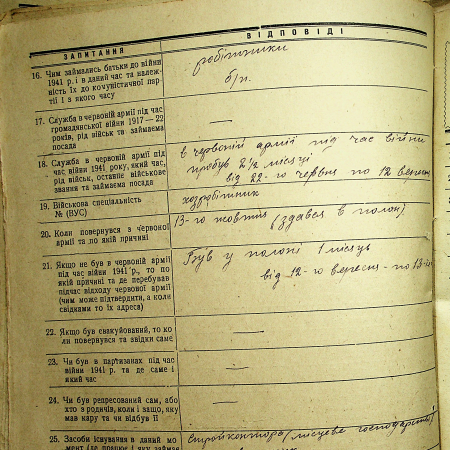 ЗАПИТАННЯ
ВІДПОВІДІ
16. Чим займались батьки до війни
1941 р. і в даний час та належ-
ність їх до комуністичної пар-
тії і з якого часу
робітники
б/п.
17. Служба в червоній армії під час
громадянської війни 1917—22
років, рід військ та займаєма
посада
—
18. Служба в червоній армії під
час війни 1941 року, який час,
рід військ, останнє військове
звання та займаєма посада
в червоній армії під час війни
пробув 2 1/2 місяці
від 22-го червня по 12 вересня
19. Військова спеціальність
№ (ВУС)
хозробітник
20. Коли повернувся з червоної
армії та по якій причині
13-го жовтня (здався в полон)
21. Якщо не був в червоній армії
під час війни 1941 р., то по
якій причині та де перебував
підчас відходу червоної армії
(чим може підтвердити, а коли
свідками то їх адреса)
Був у полоні 1 місяць
від 12-го вересня - по 13-го
22. Якщо був евакуйований, то ко
ли повернувся та звідки саме
—
23. Чи був в партизанах під час
війни 1941 р. та де саме і
який час
—
24. Чи був репресований сам, або
хто з родичів, коли і защо, яку
мав кару та чи відбув її
—
25. Засоби існування в даний мо
мент (де працює і яку займає
Стройконтора (місцеве господарство)